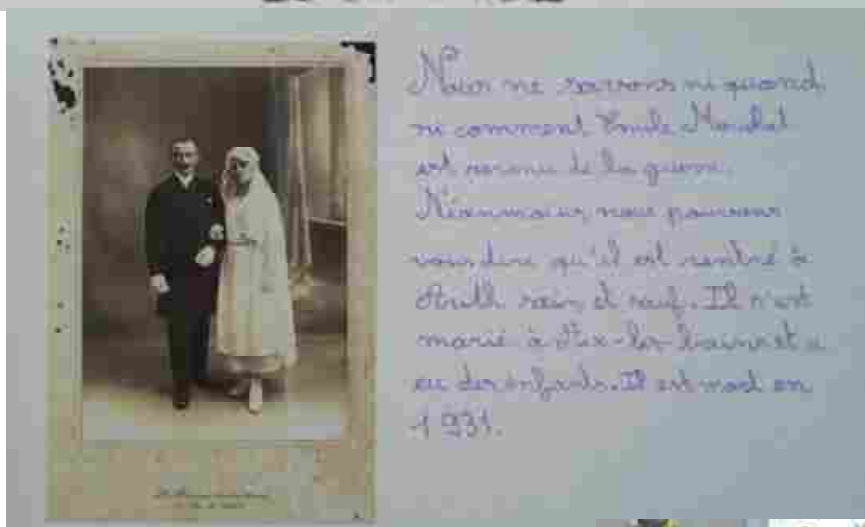 Nous ne savons ni quand,
ni comment Emile
est revenu de la guerre.
Néanmoins, nous pouvons
vous dire qu'il est rentré à
sain et sauf. Il s'est
marié à Aix-les-bains et a
eu des enfants. Il est mort en
1931.